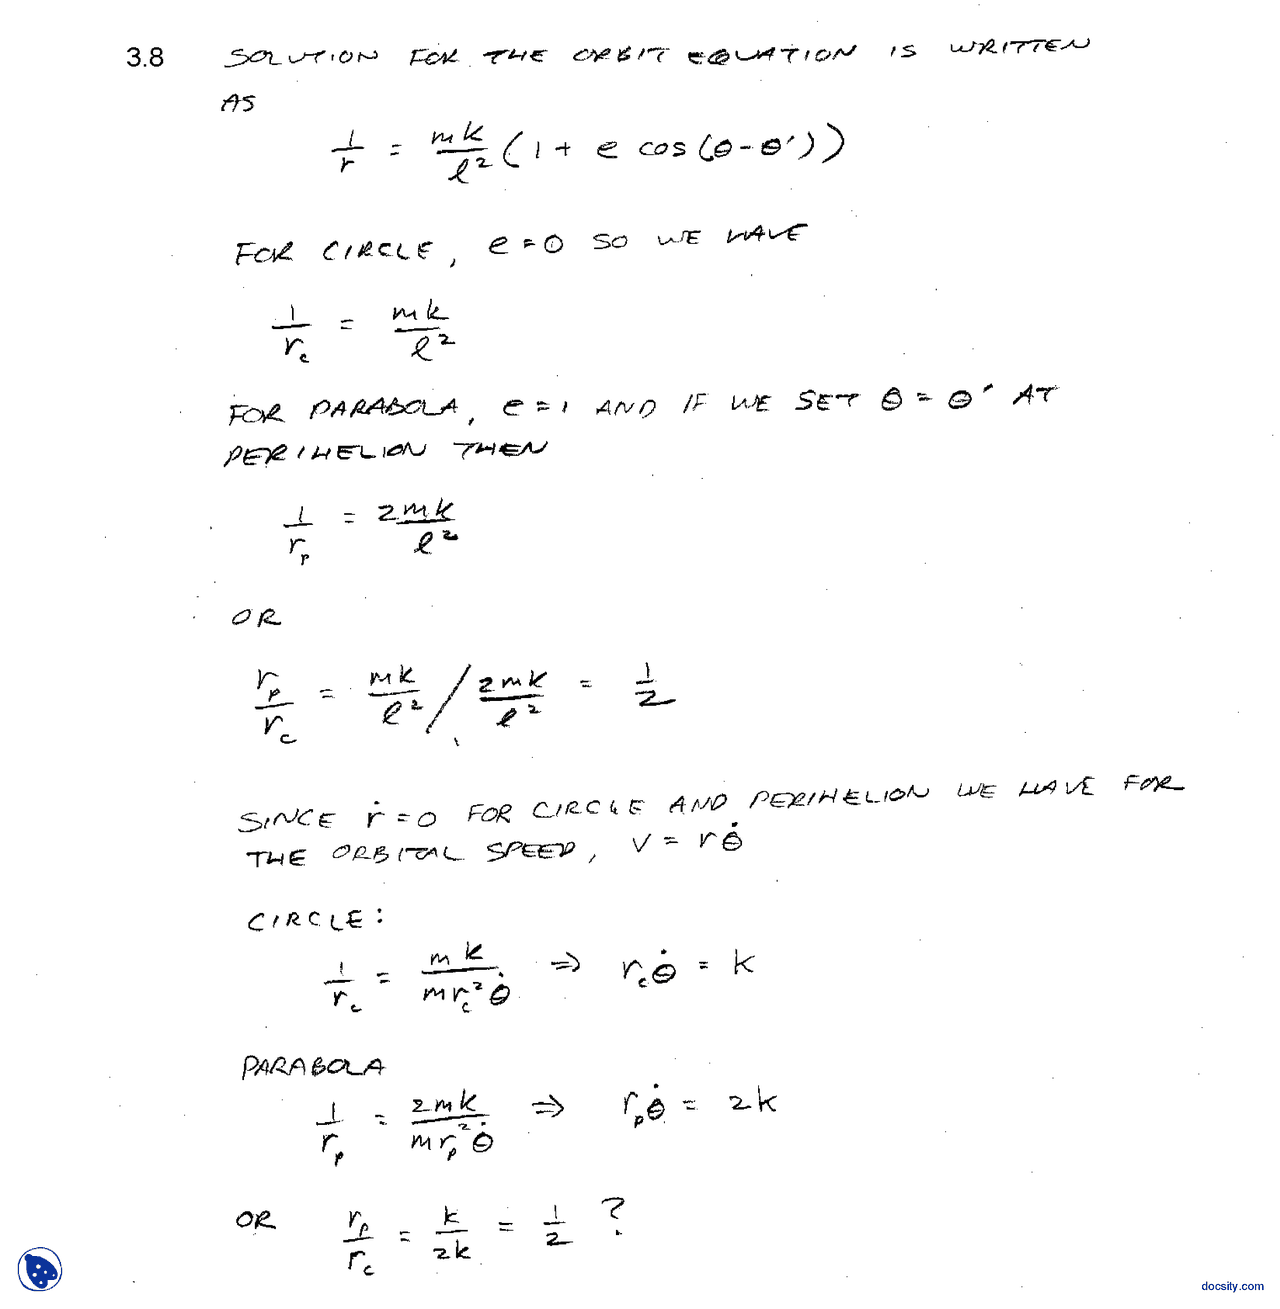 3.8 SOLUTION FOR THE ORBIT EQUATION IS WRITTEN
AS
1/r = mk/ℓ² (1 + e cos(θ-θ'))
FOR CIRCLE, e=0 SO WE HAVE
1/r_c = mk/ℓ²
FOR PARABOLA, e=1 AND IF WE SET θ=θ' AT
PERIHELION THEN
1/r_p = 2mk/ℓ²
OR
r_p/r_c = mk/ℓ² / 2mk/ℓ² = 1/2
SINCE ṙ=0 FOR CIRCLE AND PERIHELION WE HAVE FOR
THE ORBITAL SPEED, v = rθ̇
CIRCLE:
1/r_c = mk/mr_c²θ̇ ⇒ r_cθ̇ = k
PARABOLA
1/r_p = 2mk/mr_p²θ̇ ⇒ r_pθ̇ = 2k
OR r_p/r_c = k/2k = 1/2 ?
docsity.com